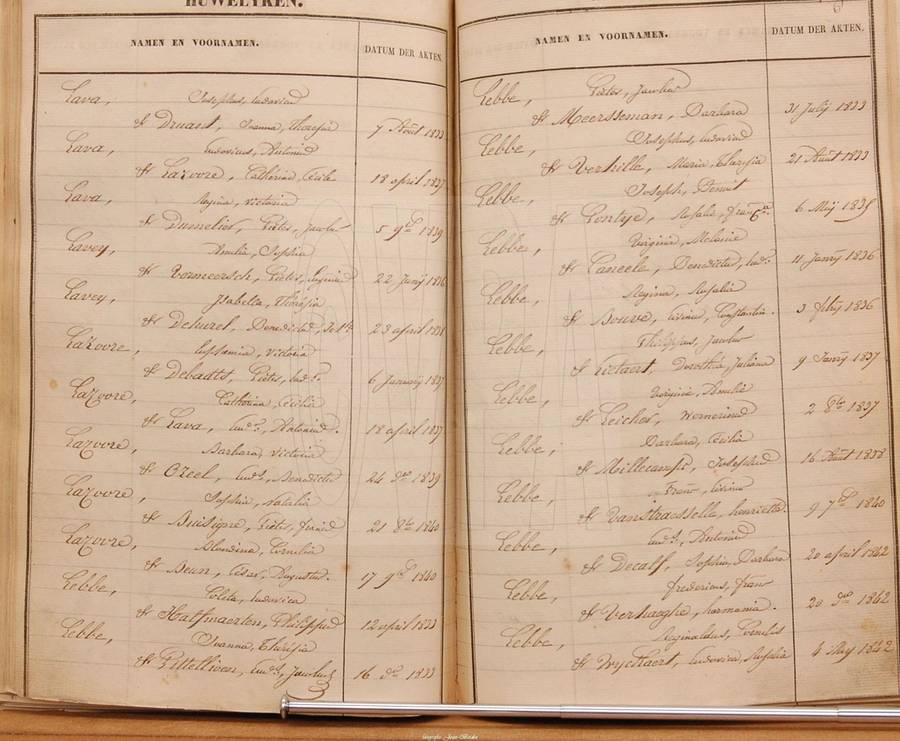 HUWELYKEN.
NAMEN EN VOORNAMEN. DATUM DER AKTEN.
Lava, Josephus, Ludovicus
& Druant, Joanna, Theresia 7 Aout 1833
Lava, Ludovicus, Antonius
& Lazoore, Catherina, Cecile 18 april 1837
Lava, Regina, Victoria
& Dumelie, Pieter, Jacobus 5 9bre 1839
Lavey, Amelia, Sophia
& Vermeersch, Pieter, Eugenius 22 Junij 1836
Lavey, Isabella, Theresia
& Deburel, Benedictus, 23 april 1838
Lazoore, Euphemia, Victoria
& Debadts, Pieter, Lud. 6 January 1837
Lazoore, Catherina, Cecilia
& Lava, Lud., Antonius. 18 april 1837
Lazoore, Barbara, Victoria
& Ozeel, Lud., Benedictus 24 do 1839
Lazoore, Sophia, Natalia
& Buisigne, Pieter, 21 8bre 1840
Lazoore, Blondina, Cornelia
& Beun, Cesar, Augustus. 17 9bre 1840
Lebbe, Coleta, Ludovica
& Halfmaerten, Philippus 12 april 1833
Lebbe, Joanna, Theresia
& Pittellioen, Lud., Jacobus 16 do 1833
NAMEN EN VOORNAMEN. DATUM DER AKTEN.
Lebbe, Pieter, Jacobus
& Meersseman, Barbara 31 July 1833
Lebbe, Josephus, Ludovicus
& Verhille, Maria, Theresia 21 Aout 1833
Lebbe, Joseph, Benoit
& Pentye, Rosalie, 6 Mey 1835
Lebbe, Virginia, Melanie
& Caneele, Benedictus, Lud. 11 January 1836
Lebbe, Regina, Rosalia
& Bouve, Livinus, Constantin. 3 1836
Lebbe, Philippus, Jacobus
& Lietaert, Dorothea, Juliana 9 January 1837
Lebbe, Virginie, Amelie
& Leicher, Wernerius 2 8bre 1837
Lebbe, Barbara, Cecilia
& Meillecamps, Josephus 16 Aout 1838
Lebbe, Fran, Livinus
& Vanstraesselle, Henriette. 9 7bre 1840
Lebbe, Lud., Antonius
& Decalf, Sophia, Barbara 20 april 1842
Lebbe, Fredericus, Fran
& Verhaeghe, Harmania. 20 do 1842
Lebbe, Reginaldus, Cornelius
& Wyckaert, Ludovica, Rosalia 4 May 1842